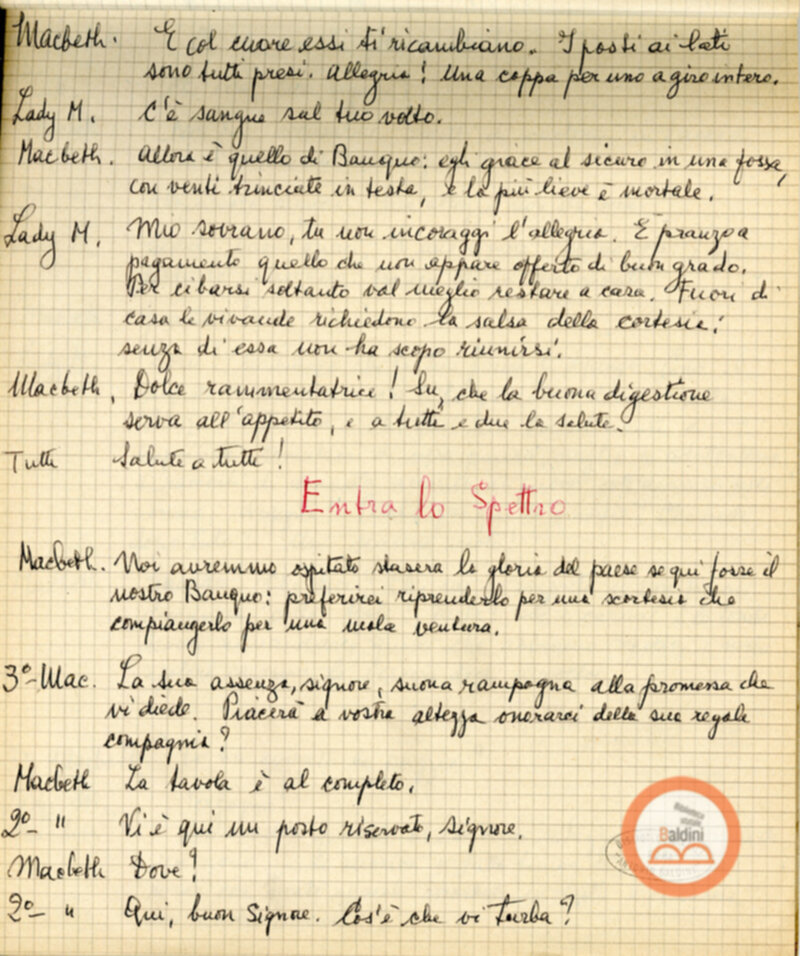 Macbeth. E col cuore essi ti ricambiano. I posti ai lati
sono tutti presi. Allegria! Una coppa per uno a giro intero.
Lady M. C'è sangue sul tuo volto.
Macbeth. Allora è quello di Banquo: egli giace al sicuro in una fossa,
con venti trinciate in testa, e la più lieve è mortale.
Lady M. Mio sovrano, tu non incoraggi l'allegria. È pranzo a
pagamento quello che non appare offerto di buon grado.
Per cibarsi soltanto val meglio restare a casa. Fuori di
casa le vivande richiedono la salsa della cortesia:
senza di essa non ha scopo riunirsi.
Macbeth, Dolce rammentatrice! Su, che la buona digestione
serva all'appetito, e a tutti e due la salute.
Tutti Salute a tutti!
Entra lo Spettro
Macbeth. Noi avremmo ospitato stasera la gloria del paese se qui fosse il
nostro Banquo: preferirei riprenderlo per una scortesia che
compiangerlo per una mala ventura.
3º-Mac. La sua assenza, signore, suona rampogna alla promessa che
vi diede. Piacerà a vostra altezza onorarci della sua regale
compagnia?
Macbeth La tavola è al completo.
2º- " Vi è qui un posto riservato, signore.
Macbeth Dove?
2º- " Qui, buon Signore. Cos'è che vi turba?
Biblioteca
Baldini